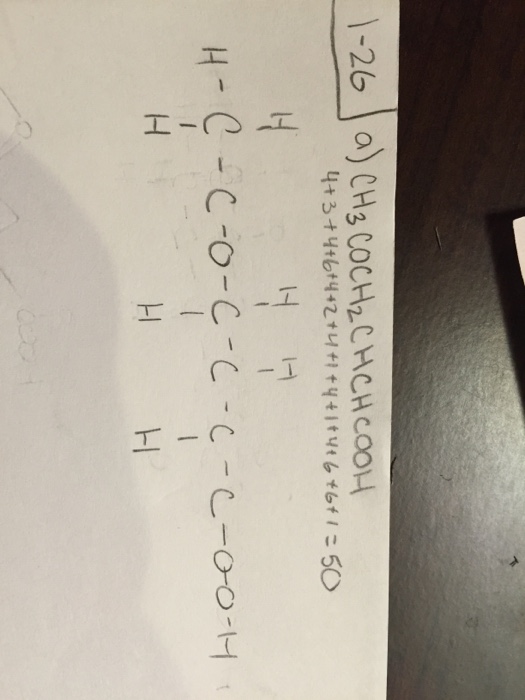 1-26 a) CH3COCH2CHCHCOOH
4+3+4+6+4+2+4+1+4+1+4+6+6+1=50
H H H
H-C-C-O-C-C-C-C-O-O-H
H H H